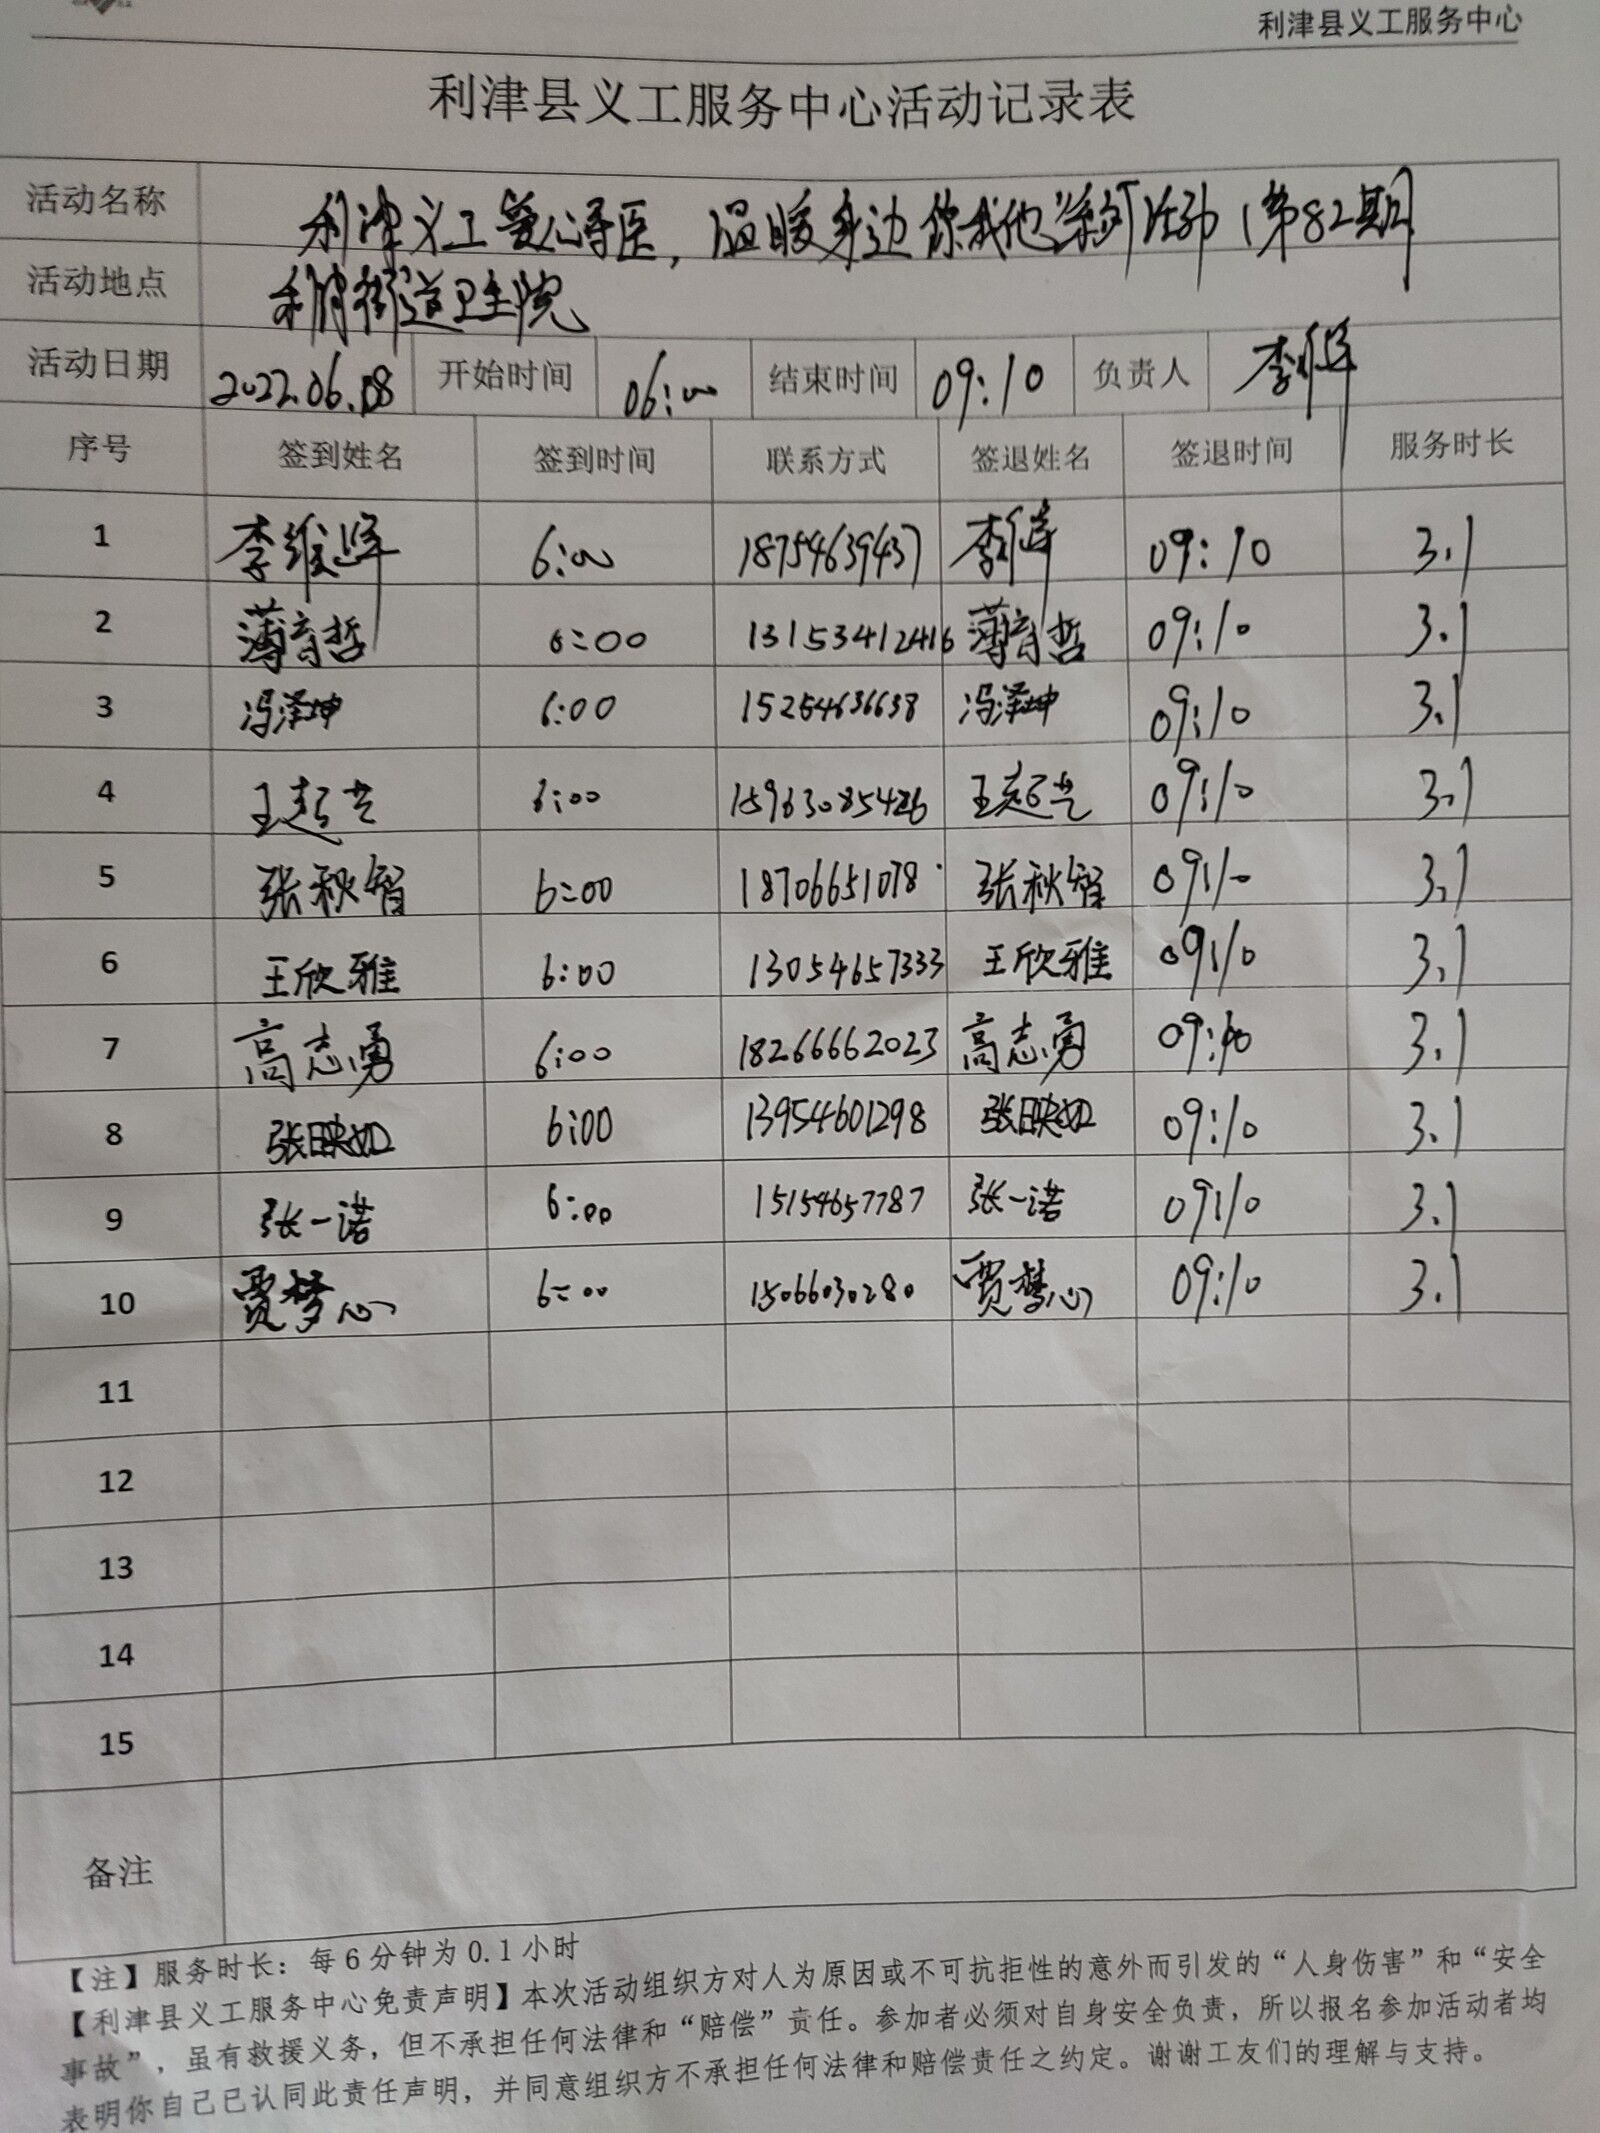 利津县义工服务中心
利津县义工服务中心活动记录表
活动名称 利津义工爱心导医，温暖身边你我他"系列活动（第82期）
活动地点 利津街道卫生院
活动日期 2022.06.08 开始时间 06:00 结束时间 09:10 负责人 李维峰
序号 签到姓名 签到时间 联系方式 签退姓名 签退时间 服务时长
1 李维峰 6:00 18754639437 李维峰 09:10 3.1
2 薄音哲 6:00 13153412416 薄音哲 09:10 3.1
3 冯泽坤 6:00 15254636638 冯泽坤 09:10 3.1
4 王起芸 6:00 15963085426 王起芸 09:10 3.1
5 张秋智 6:00 18706651078 张秋智 09:10 3.1
6 王欣雅 6:00 13054657333 王欣雅 09:10 3.1
7 高志勇 6:00 18266662023 高志勇 09:10 3.1
8 张映如 6:00 13954601298 张映如 09:10 3.1
9 张一诺 6:00 15154657787 张一诺 09:10 3.1
10 贾梦心 6:00 15066030280 贾梦心 09:10 3.1
11
12
13
14
15
备注
【注】服务时长：每6分钟为0.1小时
【利津县义工服务中心免责声明】本次活动组织方对人为原因或不可抗拒性的意外而引发的“人身伤害”和“安全
事故”，虽有救援义务，但不承担任何法律和“赔偿”责任。参加者必须对自身安全负责，所以报名参加活动者均
表明你自己已认同此责任声明，并同意组织方不承担任何法律和赔偿责任之约定。谢谢工友们的理解与支持。